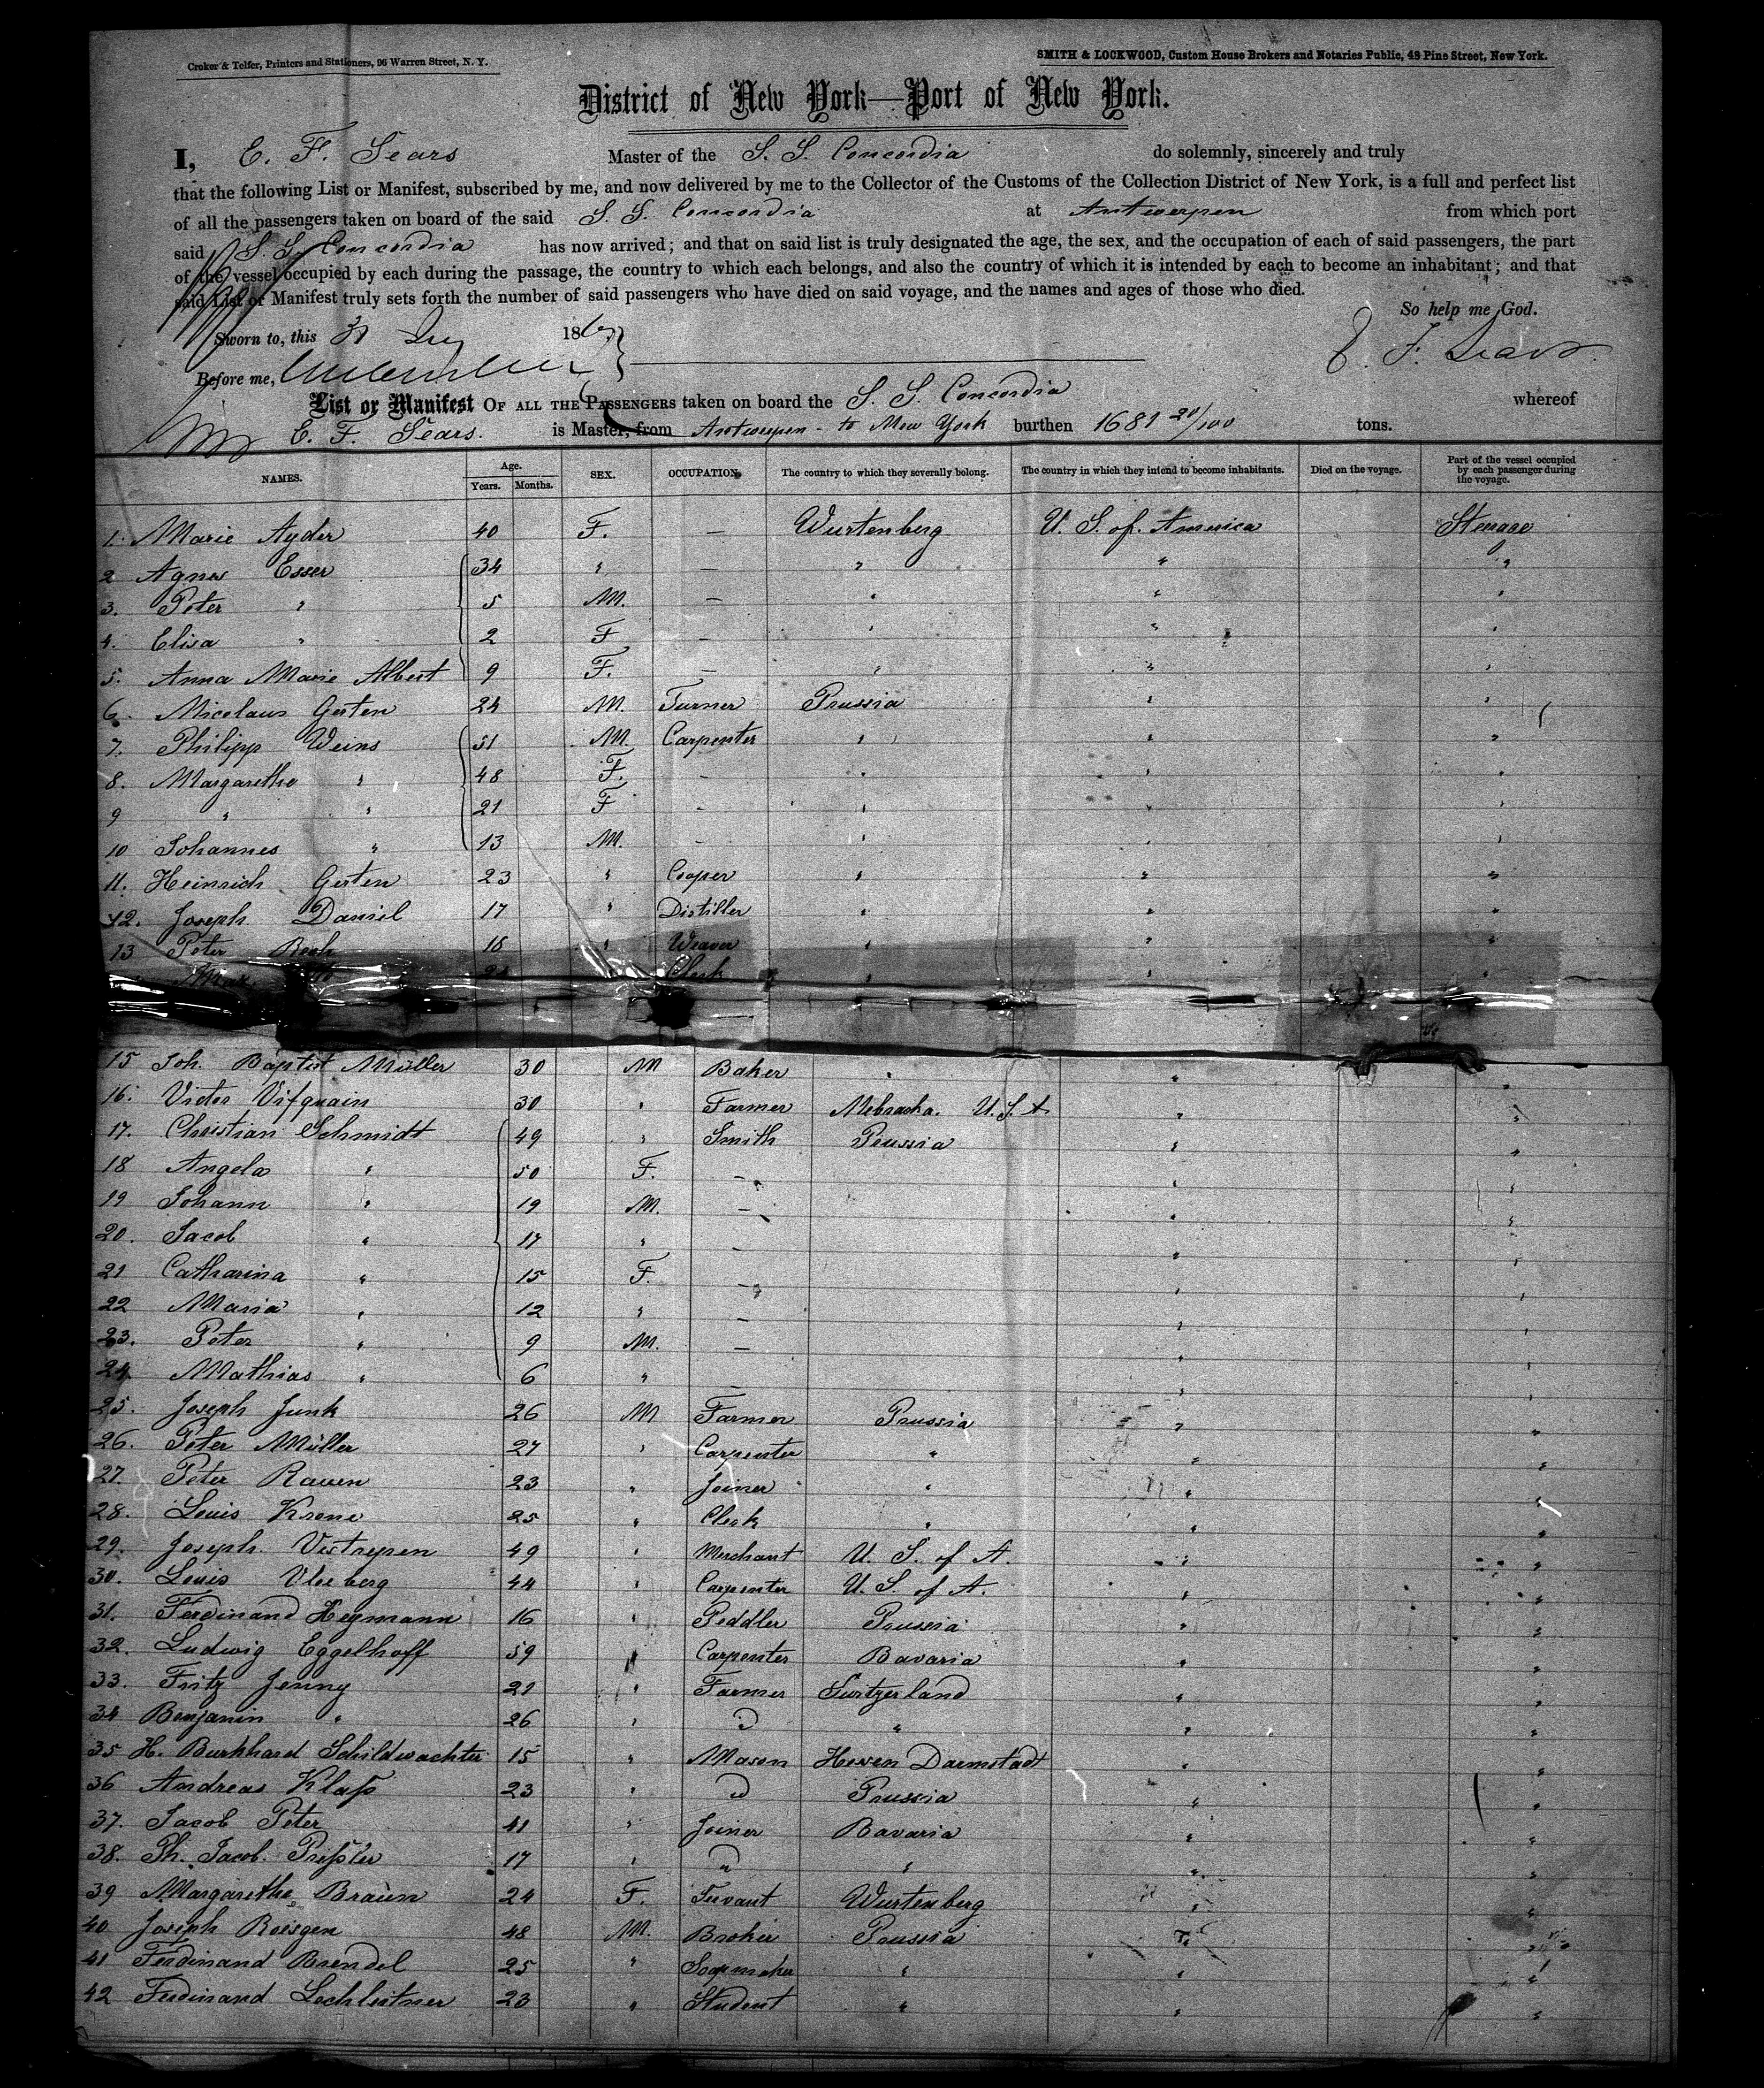 Croker & Telfer, Printers and Stationers, 96 Warren Street, N. Y.
SMITH & LOCKWOOD, Custom House Brokers and Notaries Public, 48 Pine Street, New York.
District of New York—Port of New York.
I, E. F. Sears Master of the S. S. Concordia do solemnly, sincerely and truly
that the following List or Manifest, subscribed by me, and now delivered by me to the Collector of the Customs of the Collection District of New York, is a full and perfect list
of all the passengers taken on board of the said S. S. Concordia at Antwerpen from which port
said S. S. Concordia has now arrived; and that on said list is truly designated the age, the sex, and the occupation of each of said passengers, the part
of the vessel occupied by each during the passage, the country to which each belongs, and also the country of which it is intended by each to become an inhabitant; and that
said List or Manifest truly sets forth the number of said passengers who have died on said voyage, and the names and ages of those who died.
So help me God.
Sworn to, this 31 186
E. F. Sears
Before me,
List or Manifest OF ALL THE PASSENGERS taken on board the S. S. Concordia whereof
E. F. Sears. is Master, from Antwerpen - to New York burthen 1681 20/100 tons.
NAMES. Age. Years. Months. SEX. OCCUPATION. The country to which they severally belong. The country in which they intend to become inhabitants. Died on the voyage. Part of the vessel occupied by each passenger during the voyage.
1. Marie Ayder 40 F. — Wurtenberg U. S. of. America Steerage
2 Agnes Esser 34 " — " " "
3. Peter " 5 M. — " " "
4. Elisa " 2 F — " " "
5. Anna Marie Albert 9 F. — " " "
6. Nicolaus Gerten 24 M. Turner Prussia " "
7. Philipp Weins 51 M. Carpenter " " "
8. Margarethe " 48 F. - " " "
9 " " 21 F - " " "
10 Johannes " 13 M. - " " "
11. Heinrich Gerten 23 " Cooper " " "
12. Joseph Daniel 17 " Distiller " " "
13 Peter Bech 18 " Weaver " " "
Max. 21 Clerk " " "
15 Joh. Baptist Müller 30 M Baker " " "
16. Victor Vifquain 30 " Farmer Nebraska. U.S.A " "
17. Christian Schmidt 49 " Smith Prussia " "
18 Angela " 50 F. — " "
19 Johann " 19 M. — " "
20. Jacob " 17 " - " "
21 Catharina " 15 F. — " "
22 Maria " 12 " — " "
23. Peter " 9 M. — " "
24. Mathias " 6 " — " "
25. Joseph Junk 26 M Farmer Prussia " "
26. Peter Müller 27 " Carpenter " " "
27. Peter Rauen 23 " Joiner " " "
28. Louis Krone 25 " Clerk " " "
29. Joseph Vistrepen 49 " Merchant U. S. of A. " "
30. Louis Vleeberg 44 " Carpenter U. S. of A. " "
31. Ferdinand Heymann 16 " Peddler Prussia " "
32. Ludwig Eggelhoff 59 " Carpenter Bavaria " "
33. Fritz Jenny 21 " Farmer Switzerland " "
34 Benjamin " 26 " " " " "
35 H. Burkhard Schildwachter 15 " Mason Hessen Darmstadt " "
36 Andreas Klaß 23 " " Prussia " "
37. Jacob Peter 41 " Joiner Bavaria " "
38. Ph. Jacob. Preßler 17 " " " " "
39 Margarethe Braun 24 F. Servant Wurtenberg " "
40 Joseph Roesgen 48 M. Broker Prussia " "
41 Ferdinand Brendel 25 " Soapmaker " " "
42 Ferdinand Lechleitner 23 " Student " " "